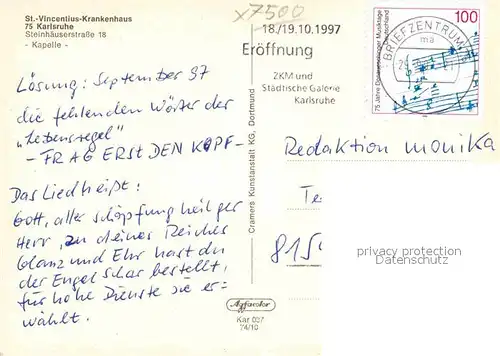 St.-Vincentius-Krankenhaus
75 Karlsruhe
Steinhäuserstraße 18
- Kapelle -
x7500
18/19.10.1997
Eröffnung
ZKM und
Städtische Galerie
Karlsruhe
BRIEFZENTRUM
ma
100
75 Jahre Donaueschinger Musiktage
Deutschland
Lösung: September 97
die fehlenden Wörter der
"Lebensregel"
- FRAG ERST DEN KOPF -
Das Lied heißt:
Gott, aller Schöpfung heilger
Herr, zu deines Reiches
Glanz und Ehr hast du
der Engel Schar bestellt,
für hohe Dienste sie er=
wählt.
Cramers Kunstanstalt KG, Dortmund
Agfacolor
Kar 057
74/10
Redaktion monika
Te
815
privacy protection
Datenschutz